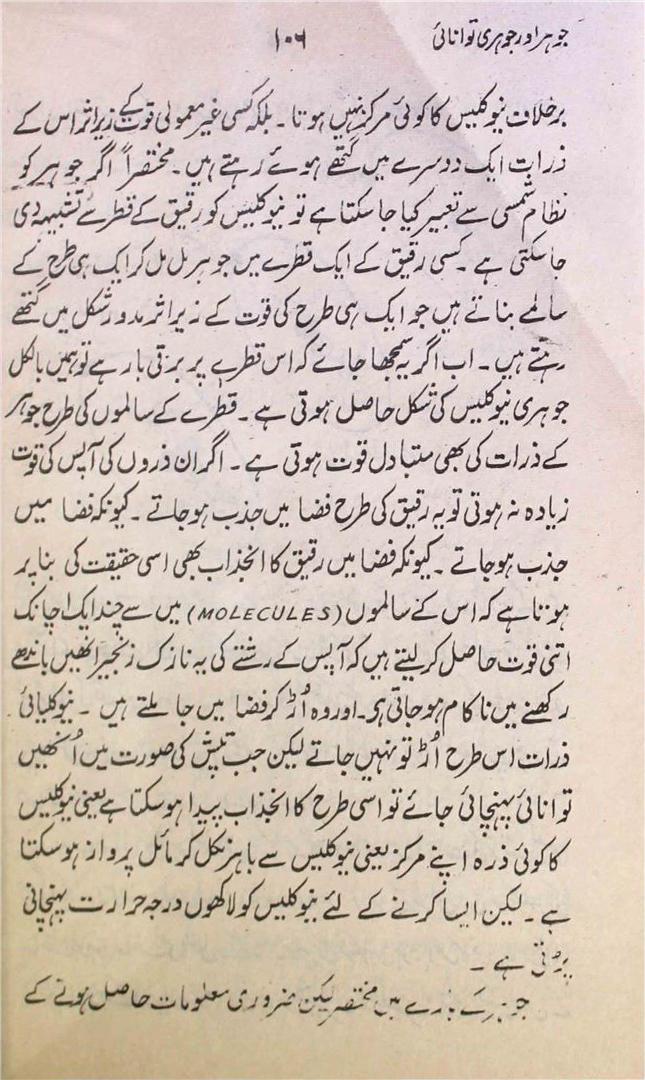 جوہر اور جوہری توانائی
۱۰۶
برخلاف نیوکلیس کا کوئی مرکز نہیں ہوتا ۔ بلکہ کسی غیر معمولی قوت کے زیر اثر اس کے
ذرات ایک دوسرے میں گتھے ہوئے رہتے ہیں ۔ مختصراً اگر جوہر کو
نظام شمسی سے تعبیر کیا جا سکتا ہے تو نیوکلیس کو رقیق کے قطرے سے تشبیہہ دی
جا سکتی ہے ۔ کسی رقیق کے ایک قطرے میں جوہر مل مل کر ایک ہی طرح کے
سالمے بناتے ہیں جو ایک ہی طرح کی قوت کے زیر اثر مدور شکل میں گتھے
رہتے ہیں ۔ اب اگر یہ سمجھا جائے کہ اس قطرے پر برقی بار ہے تو ہمیں بالکل
جوہری نیوکلیس کی شکل حاصل ہوتی ہے ۔ قطرے کے سالموں کی طرح جوہر
کے ذرات کی بھی متبادل قوت ہوتی ہے ۔ اگر ان ذروں کی آپس کی قوت
زیادہ نہ ہوتی تو یہ رقیق کی طرح فضا میں جذب ہو جاتے ۔ کیونکہ فضا میں
جذب ہو جاتے ۔ کیونکہ فضا میں رقیق کا انجذاب بھی اسی حقیقت کی بنا پر
ہوتا ہے کہ اس کے سالموں (MOLECULES) میں سے چند ایک اچانک
اتنی قوت حاصل کر لیتے ہیں کہ آپس کے رشتے کی یہ نازک زنجیر انھیں باندھے
رکھنے میں ناکام ہو جاتی ہے۔ اور وہ اُڑ کر فضا میں جا ملتے ہیں ۔ نیوکلیائی
ذرات اس طرح اُڑ تو نہیں جاتے لیکن جب تپش کی صورت میں اُنھیں
توانائی پہنچائی جائے تو اسی طرح کا انجذاب پیدا ہو سکتا ہے یعنی نیوکلیس
کا کوئی ذرہ اپنے مرکز یعنی نیوکلیس سے باہر نکل کر مائل پرواز ہو سکتا
ہے ۔ لیکن ایسا کرنے کے لئے نیوکلیس کو لاکھوں درجہ حرارت پہنچانی
پڑتی ہے ۔
جوہر کے بارے میں مختصر لیکن ضروری معلومات حاصل ہونے کے